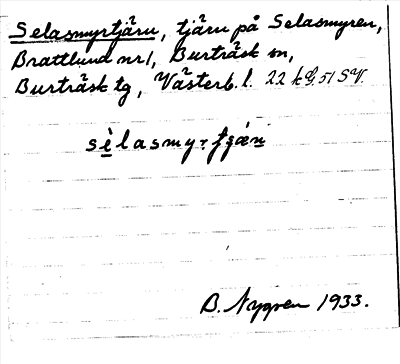 Selasmyrtjärn, tjärn på Selasmyren,
Brattlund nr 1, Burträsk sn,
Burträsk tg, Västerb. l. 22 k G, 51 SV.
sèlasmy:r tjæ:n
B. Nygren 1933.